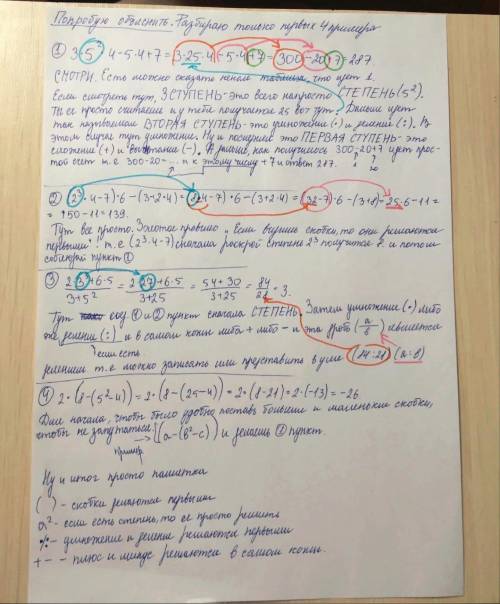 Попробую объяснить. Разбираю только первых 4 примера
① 3·5²·4-5·4+7=3·25·4-5·4+7=300-20+7=287.
СМОТРИ. Есть можно сказать некая таблица что идет 1.
Если смотреть тут, 3 СТУПЕНЬ-это всего напросто СТЕПЕНЬ(5²).
Ты ее просто считаешь и у тебя получается 25 вот тут. Дальше идет
так называемая ВТОРАЯ СТУПЕНЬ-это умножение (·) и деление (:). В
этом случае тут умножение. Ну и последняя это ПЕРВАЯ СТУПЕНЬ-это
сложение (+) и вычитание (-). А раньше, как получилось 300-20+7 идет прос-
той счет и.е 300-20= ... и к этому числу +7 и ответ 287.
② (2³·4-7)·6-(3+2·4)=(8·4-7)·6-(3+2·4)=(32-7)·6-(3+8)=25·6-11=
=150-11=139.
Тут все просто. Золотое правило „Если видишь скобки, то они решаются
первыми“. т.е (2³·4-7) сначала раскрой степень 2³ получится 8. и потом
соблюдай пункт ①
③ 2·3³+6·5 / 3+5² = 2·27+6·5 / 3+25 = 54+30 / 3+25 = 84 / 28 = 3.
Тут код ① и ② пункт сначала СТЕПЕНЬ. Затем умножение (·) либо
деление (:) и в самом конце либо + либо - и эта дробь (a/b) является
если есть
делением т.е можно записать или представить в уме (84:28) (a:b)
④ 2·(8-(5²-4))=2·(8-(25-4))=2·(8-21)=2·(-13)=-26.
Для начала, чтобы было удобно поставь большие и маленькие скобки,
чтобы не запутаться. (a-(b²-c)) и делаешь ① пункт.
пример
Ну и итог просто памятка
( ) - скобки решаются первыми
a² - если есть степень, то ее просто решить
·/: - умножение и деление решаются первыми
+ - - плюс и минус решаются в самом конце.